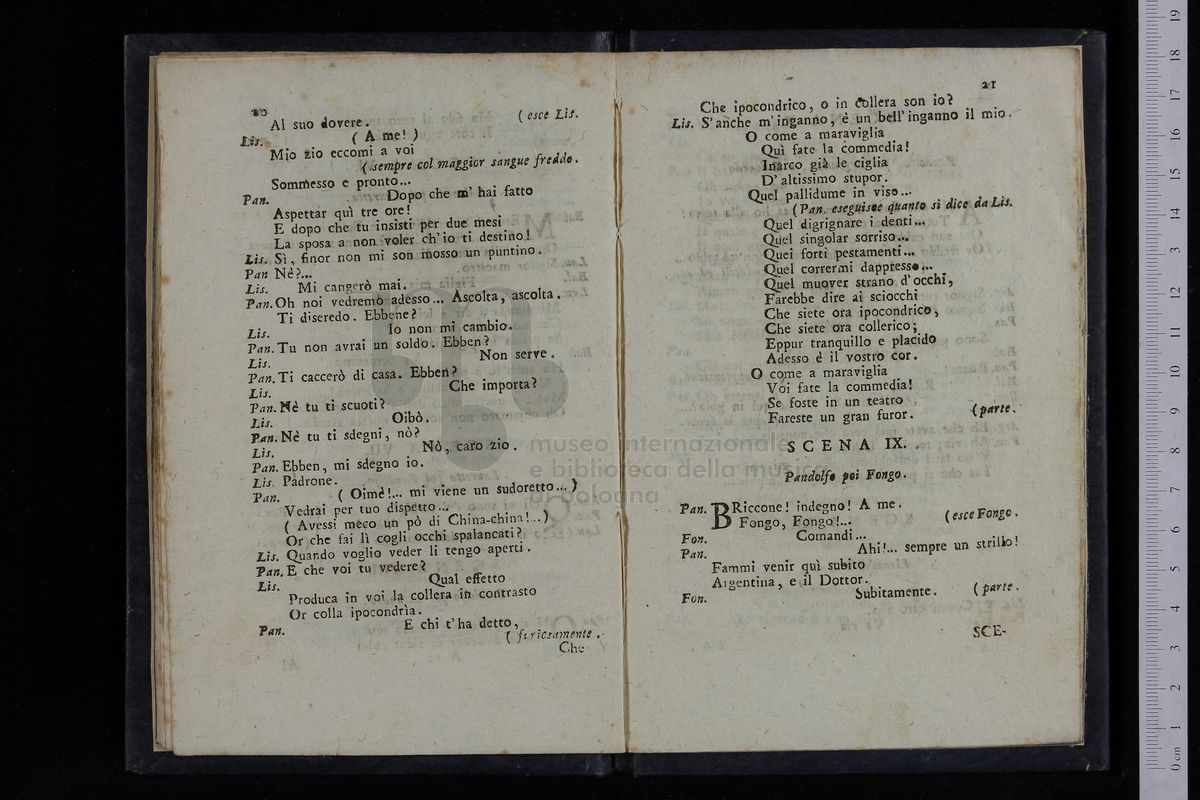 20
Al suo dovere. (esce Lis.
Lis. ( A me! )
Mio zio eccomi a voi
( sempre col maggior sangue freddo.
Sommesso e pronto...
Pan. Dopo che m' hai fatto
Aspettar quì tre ore!
E dopo che tu insisti per due mesi
La sposa a non voler ch'io ti destino!
Lis. Sì, finor non mi son mosso un puntino.
Pan Nè?...
Lis. Mi cangerò mai.
Pan. Oh noi vedremo adesso... Ascolta, ascolta.
Ti diseredo. Ebbene?
Lis. Io non mi cambio.
Pan. Tu non avrai un soldo. Ebben?
Lis. Non serve.
Pan. Ti caccerò di casa. Ebben?
Lis. Che importa?
Pan. Nè tu ti scuoti?
Lis. Oibò.
Pan. Nè tu ti sdegni, nò?
Lis. Nò, caro zio.
Pan. Ebben, mi sdegno io.
Lis. Padrone.
Pan. ( Oimè!... mi viene un sudoretto... )
Vedrai per tuo dispetto...
( Avessi meco un pò di China-china!...)
Or che fai lì cogli occhi spalancati?
Lis. Quando voglio veder li tengo aperti.
Pan. E che voi tu vedere?
Lis. Qual effetto
Produca in voi la collera in contrasto
Or colla ipocondrìa.
Pan. E chi t'ha detto,
( furiosamente.
Che
21
Che ipocondrico, o in collera son io?
Lis. S'anche m'inganno, è un bell'inganno il mio.
O come a maraviglia
Quì fate la commedia!
Inarco già le ciglia
D'altissimo stupor.
Quel pallidume in viso...
(Pan. eseguisce quanto si dice da Lis.
Quel digrignare i denti...
Quel singolar sorriso...
Quei forti pestamenti...
Quel corrermi dappresso...
Quel muover strano d'occhi,
Farebbe dire ai sciocchi
Che siete ora ipocondrico,
Che siete ora collerico;
Eppur tranquillo e placido
Adesso è il vostro cor.
O come a maraviglia
Voi fate la commedia!
Se foste in un teatro
Fareste un gran furor. (parte.
SCENA IX.
Pandolfo poi Fongo.
Pan. BRiccone! indegno! A me.
Fongo, Fongo!... (esce Fongo.
Fon. Comandi...
Pan. Ahi!... sempre un strillo!
Fammi venir quì subito
Argentina, e il Dottor.
Fon. Subitamente. (parte.
SCE-
museo internazionale
e biblioteca della musica
di bologna
0 cm 1 2 3 4 5 6 7 8 9 10 11 12 13 14 15 16 17 18 19